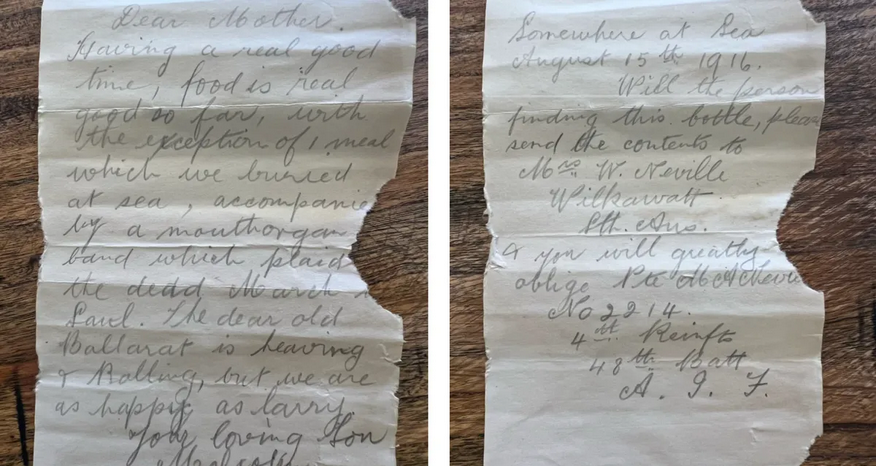 Dear Mother.
Having a real good
time, food is real
good so far, with
the exception of 1 meal
which we buried
at sea, accompanie
by a mouthorgan
band which plaid
the dedd March
Saul. The dear old
Ballarat is heaving
& Rolling, but we are
as happy as larry.
Your loving Son
Malcolm
Somewhere at Sea
August 15th 1916.
Will the person
finding this bottle, pleas
send the contents to
Mrs W. Neville
Wilkawatt
Sth. Aus.
& you will greatly
oblige Pte M A Nevi
No 2214.
4th Reinfts
48th Batt
A. I. F.